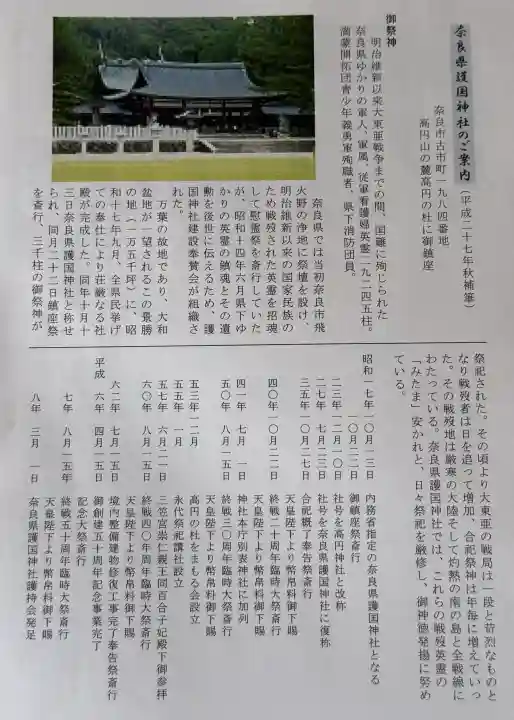 奈良県護国神社のご案内（平成二十七年秋補筆）
奈良市古市町一九八四番地
高円山の麓高円の杜に御鎮座
御祭神
明治維新以来大東亜戦争までの間、国難に殉じられた
奈良県ゆかりの軍人、軍属、従軍看護婦英霊二九二四五柱。
満蒙開拓団青少年義勇軍殉職者、県下消防団員。
奈良県では当初奈良市飛
火野の浄地に祭壇を設け、
明治維新以来の国家民族の
ため戦歿された英霊を招魂
して慰霊祭を斎行していた
が、昭和十四年六月県下ゆ
かりの英霊の鎮魂とその遺
勲を後世に伝えるため、護
国神社建設奉賛会が組織さ
れた。
万葉の故地であり、大和
盆地が一望されるこの景勝
の地（一万五千坪）に、昭
和十七年九月、全県民挙げ
ての奉仕により荘厳なる社
殿が完成した。同年十月十
三日奈良県護国神社と称せ
られ、同月二十二日鎮座祭
を斎行、三千柱の御祭神が
祭祀された。その頃より大東亜の戦局は一段と苛烈なものと
なり戦歿者は日を追って増加、合祀祭神は年毎に増えていっ
た。その戦歿地は厳寒の大陸そして灼熱の南の島と全戦線に
わたっている。奈良県護国神社では、これらの戦歿英霊の
「みたま」安かれと、日々祭祀を厳修し、御神徳発揚に努め
ている。
昭和一七年一〇月一三日 内務省指定の奈良県護国神社となる
一〇月二二日 御鎮座祭斎行
二三年一二月一〇日 社号を高円神社と改称
二七年七月二三日 社号を奈良県護国神社に復称
三五年一〇月二七日 合祀概了奉告祭斎行
天皇陛下より幣帛料御下賜
四〇年一〇月二二日 終戦二十周年臨時大祭斎行
天皇陛下より幣帛料御下賜
四一年七月一日 神社本庁別表神社に加列
五〇年八月一五日 終戦三〇周年臨時大祭斎行
天皇陛下より幣帛料御下賜
五三年一二月 高円の杜をまもる会設立
五五年一月 永代祭祀講社設立
五七年六月二一日 三笠宮崇仁親王同百合子妃殿下御参拝
六〇年八月一五日 終戦四〇年周年臨時大祭斎行
天皇陛下より幣帛料御下賜
六二年七月一五日 境内整備建物修復工事完了奉告祭斎行
平成六年四月一五日 御創建五十周年記念事業完了
記念大祭斎行
七年八月一五年 終戦五十周年臨時大祭斎行
天皇陛下より幣帛料御下賜
八年三月一日 奈良県護国神社護持会発足